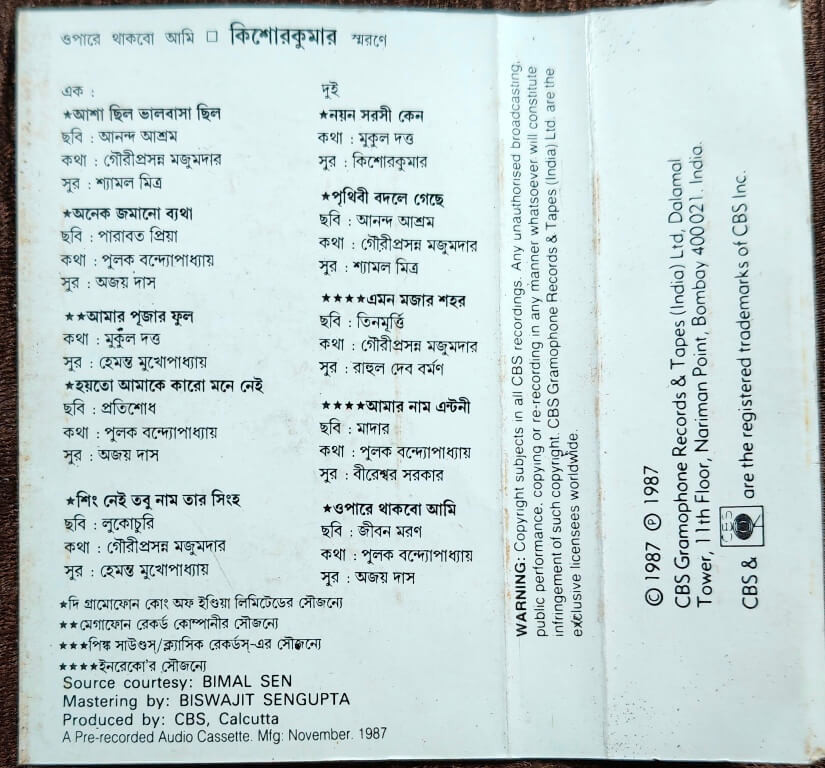 ওপারে থাকবো আমি □ কিশোরকুমার স্মরণে
এক :
★আশা ছিল ভালবাসা ছিল
ছবি : আনন্দ আশ্রম
কথা : গৌরীপ্রসন্ন মজুমদার
সুর : শ্যামল মিত্র
★অনেক জমানো ব্যথা
ছবি : পারাবত প্রিয়া
কথা : পুলক বন্দ্যোপাধ্যায়
সুর : অজয় দাস
★★আমার পূজার ফুল
কথা : মুকুল দত্ত
সুর : হেমন্ত মুখোপাধ্যায়
★হয়তো আমাকে কারো মনে নেই
ছবি : প্রতিশোধ
কথা : পুলক বন্দ্যোপাধ্যায়
সুর : অজয় দাস
★শিং নেই তবু নাম তার সিংহ
ছবি : লুকোচুরি
কথা : গৌরীপ্রসন্ন মজুমদার
সুর : হেমন্ত মুখোপাধ্যায়
দুই
★নয়ন সরসী কেন
কথা : মুকুল দত্ত
সুর : কিশোরকুমার
★পৃথিবী বদলে গেছে
ছবি : আনন্দ আশ্রম
কথা : গৌরীপ্রসন্ন মজুমদার
সুর : শ্যামল মিত্র
★★★★এমন মজার শহর
ছবি : তিনমূর্ত্তি
কথা : গৌরীপ্রসন্ন মজুমদার
সুর : রাহুল দেব বর্মণ
★★★★আমার নাম এন্টনী
ছবি : মাদার
কথা : পুলক বন্দ্যোপাধ্যায়
সুর : বীরেশ্বর সরকার
★ওপারে থাকবো আমি
ছবি : জীবন মরণ
কথা : পুলক বন্দ্যোপাধ্যায়
সুর : অজয় দাস
★দি গ্রামোফোন কোং অফ ইণ্ডিয়া লিমিটেডের সৌজন্যে
★★মেগাফোন রেকর্ড কোম্পানীর সৌজন্যে
★★★পিঙ্ক সাউণ্ডস/ক্লাসিক রেকর্ডস-এর সৌজন্যে
★★★★ইনরেকো'র সৌজন্যে
Source courtesy: BIMAL SEN
Mastering by: BISWAJIT SENGUPTA
Produced by: CBS, Calcutta
A Pre-recorded Audio Cassette. Mfg: November. 1987
WARNING: Copyright subjects in all CBS recordings. Any unauthorised broadcasting,
public performance. copying or re-recording in any manner whatsoever will constitute
infringement of such copyright. CBS Gramophone Records & Tapes (India) Ltd. are the
exclusive licensees worldwide.
© 1987 ℗ 1987
CBS Gramophone Records & Tapes (India) Ltd, Dalamal
Tower, 11th Floor, Nariman Point, Bombay 400 021. India.
CBS & CBS are the registered trademarks of CBS Inc.